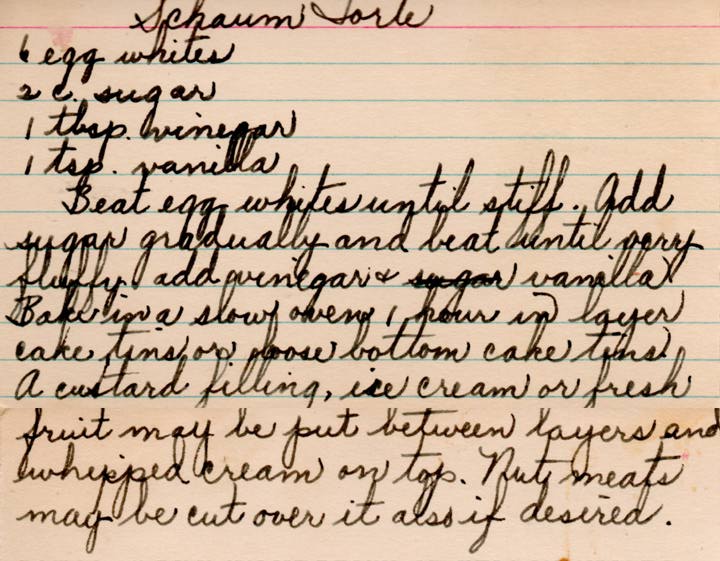 Schaum Torte
6 egg whites
2 c. sugar
1 tbsp. vinegar
1 tsp. vanilla
Beat egg whites until stiff. Add
sugar gradually and beat until very
fluffy. add vinegar & sugar vanilla.
Bake in a slow oven 1 hour in layer
cake tins or loose bottom cake tins.
A custard filling, ice cream or fresh
fruit may be put between layers and
whipped cream on top. Nut meats
may be cut over it also if desired.